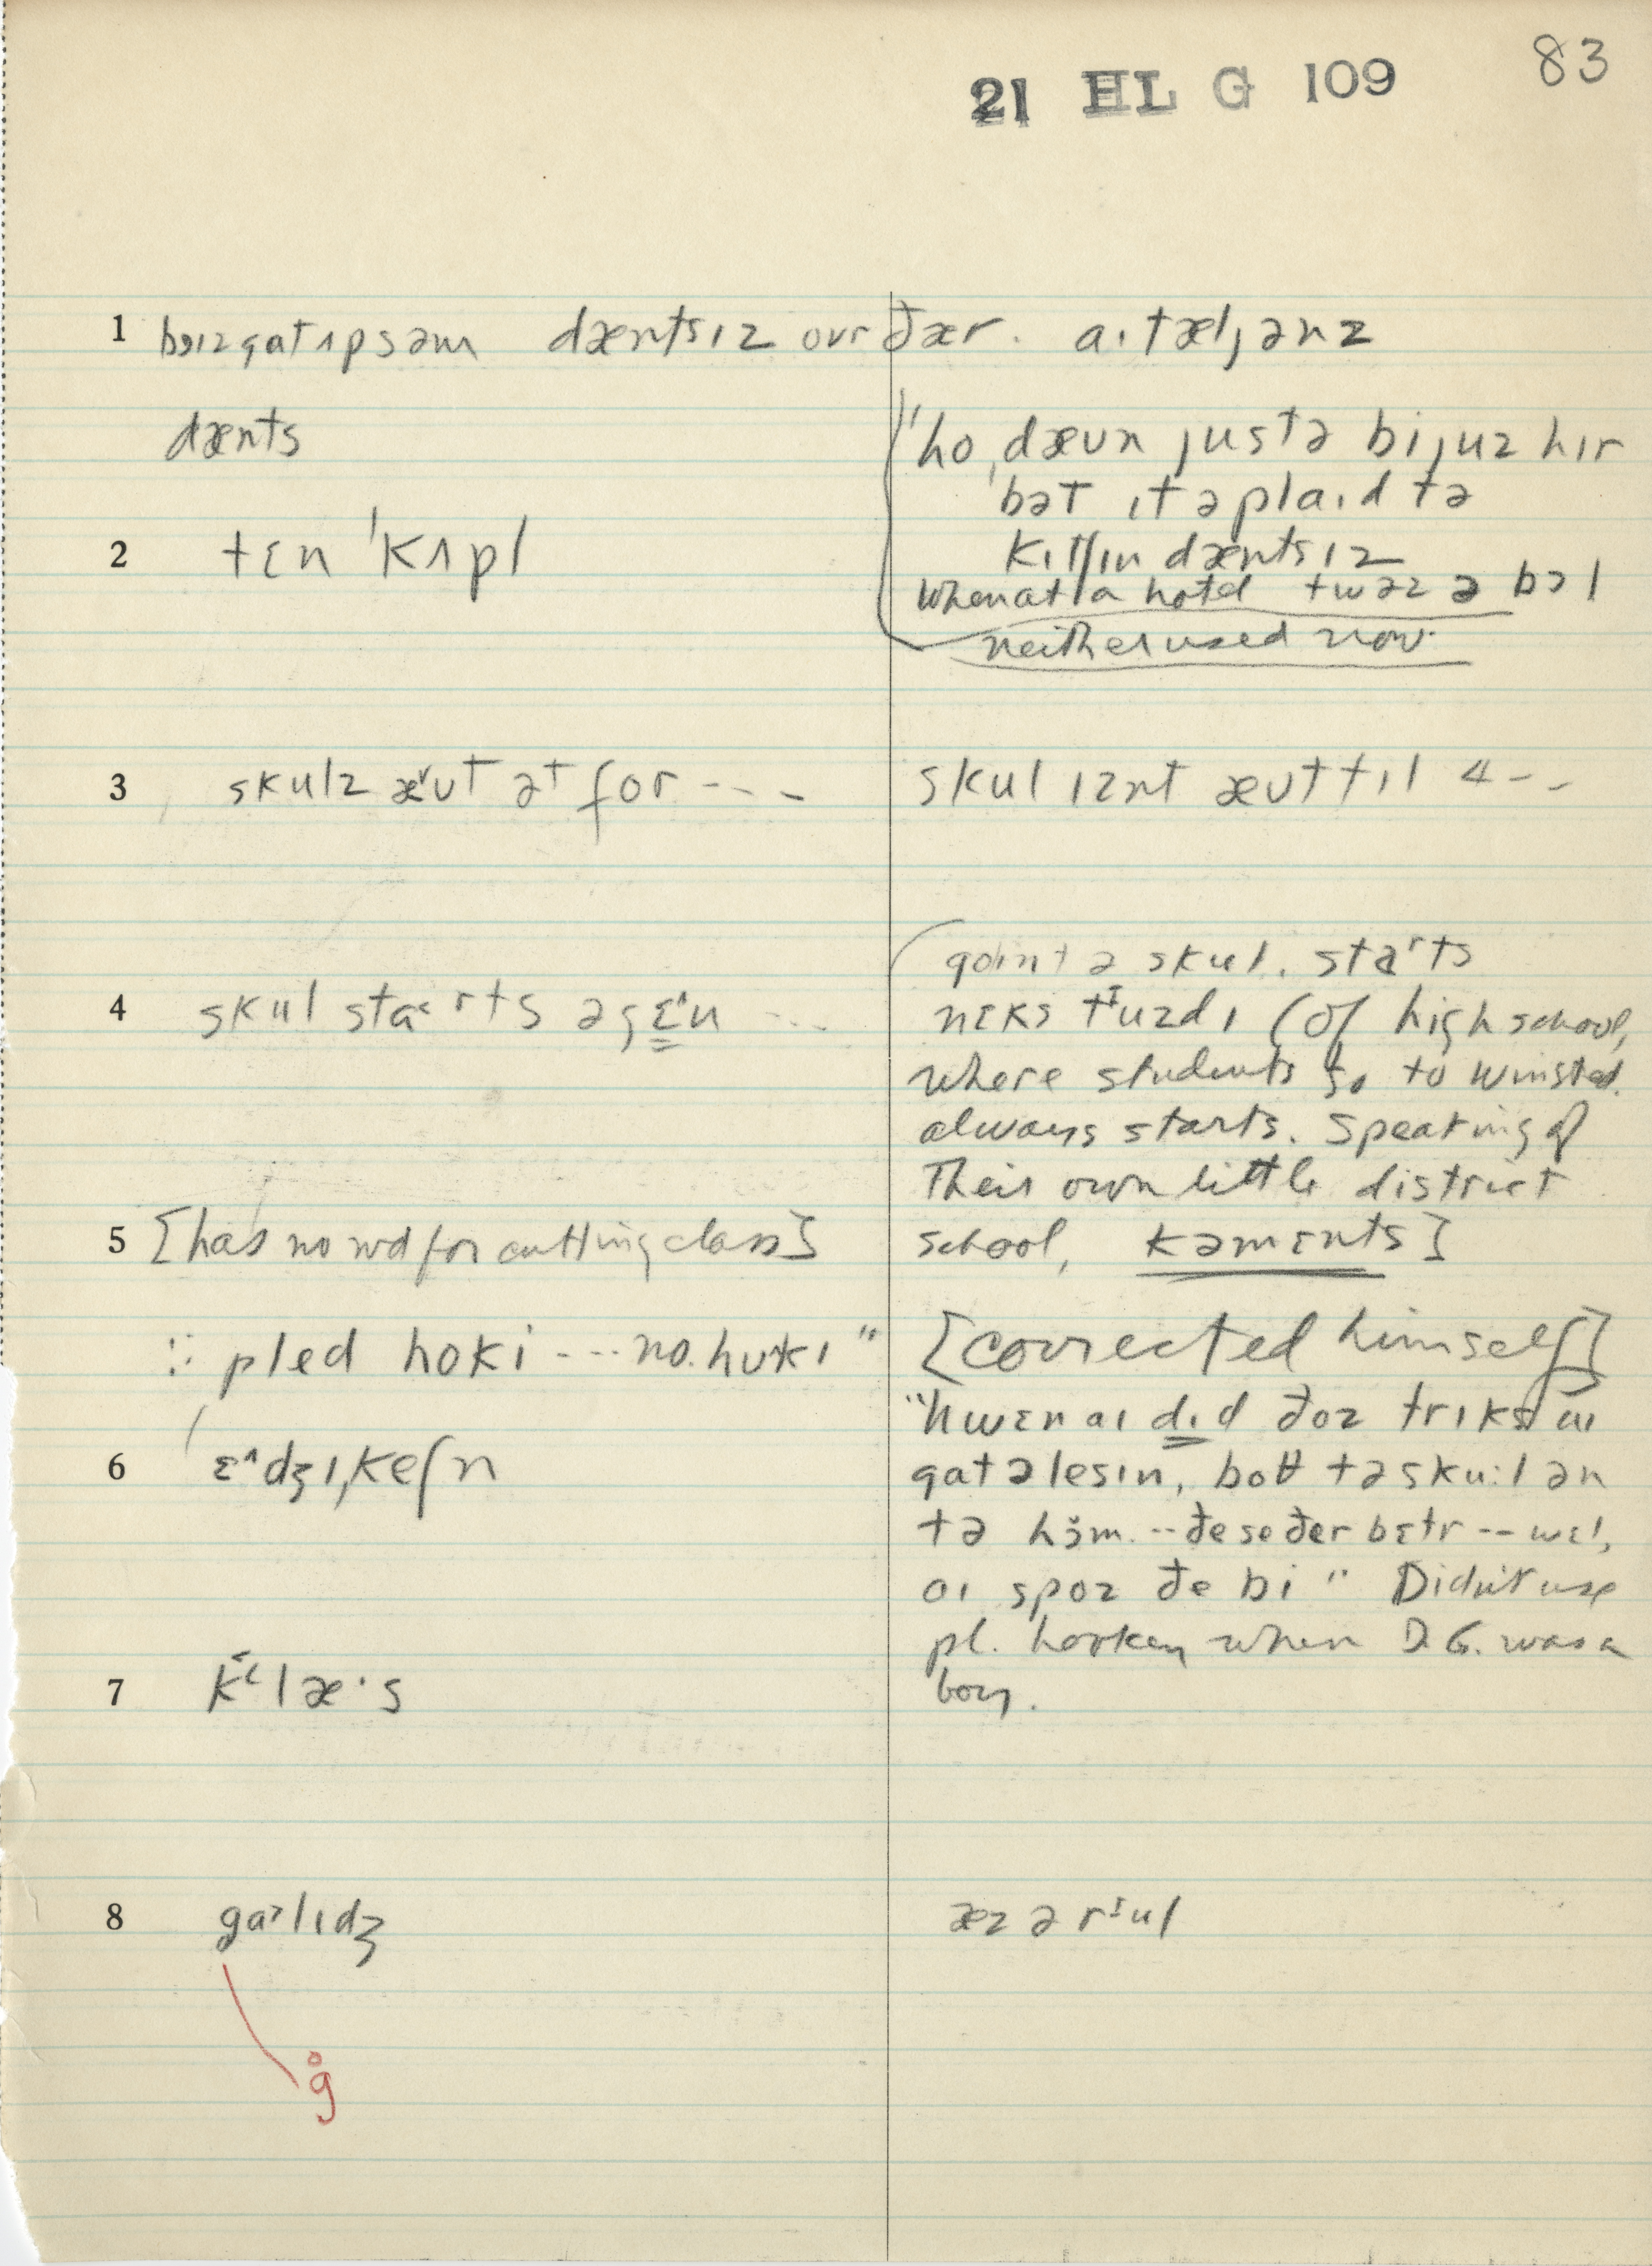 83
21 HL G 109
1 bɔɪzgatʌpsəm dæntsɪz ovr ðær. aɪtæljənz
dænts
"ho,dæʊn justə bi juz hɪr
bət ɪt əplaɪd tə
kɪtʃɪn dæntsɪz
When at a hotel twəz ə bɔl
neither used now.
2 tɛn ˈkʌpl
3 skulz æ˅ʊt ət for ---
skul ɪznt æʊt tɪl 4--
4 skul sta˂rts əgɛ̳ˈn ...
goɪnt ə skul. staˈrts
nɛks tᴵuzdɪ (of high school,
where students go to Winsted.
always starts. Speaking of
their own little district
school, kəmɛnts]
5 [has no wd for cutting class]
:: pled hoki --- no. hʊkɪ"
[corrected himself]
"hwɛn aɪ dɪd ðoz trɪks aɪ
gat ə lesɪn, boθ tə sku:l ən
tə hɵ̆m. -- ðe se ðer bɛtr -- wɛl,
aɪ spoz ðe bi" Didn't use
pl. hookey when D.G. was a
boy.
6 ɛ˄dʒɪˌkeʃn
7 k˂læ·s
8 ga˃lɪdʒ
æz ə rᴵul
g̊